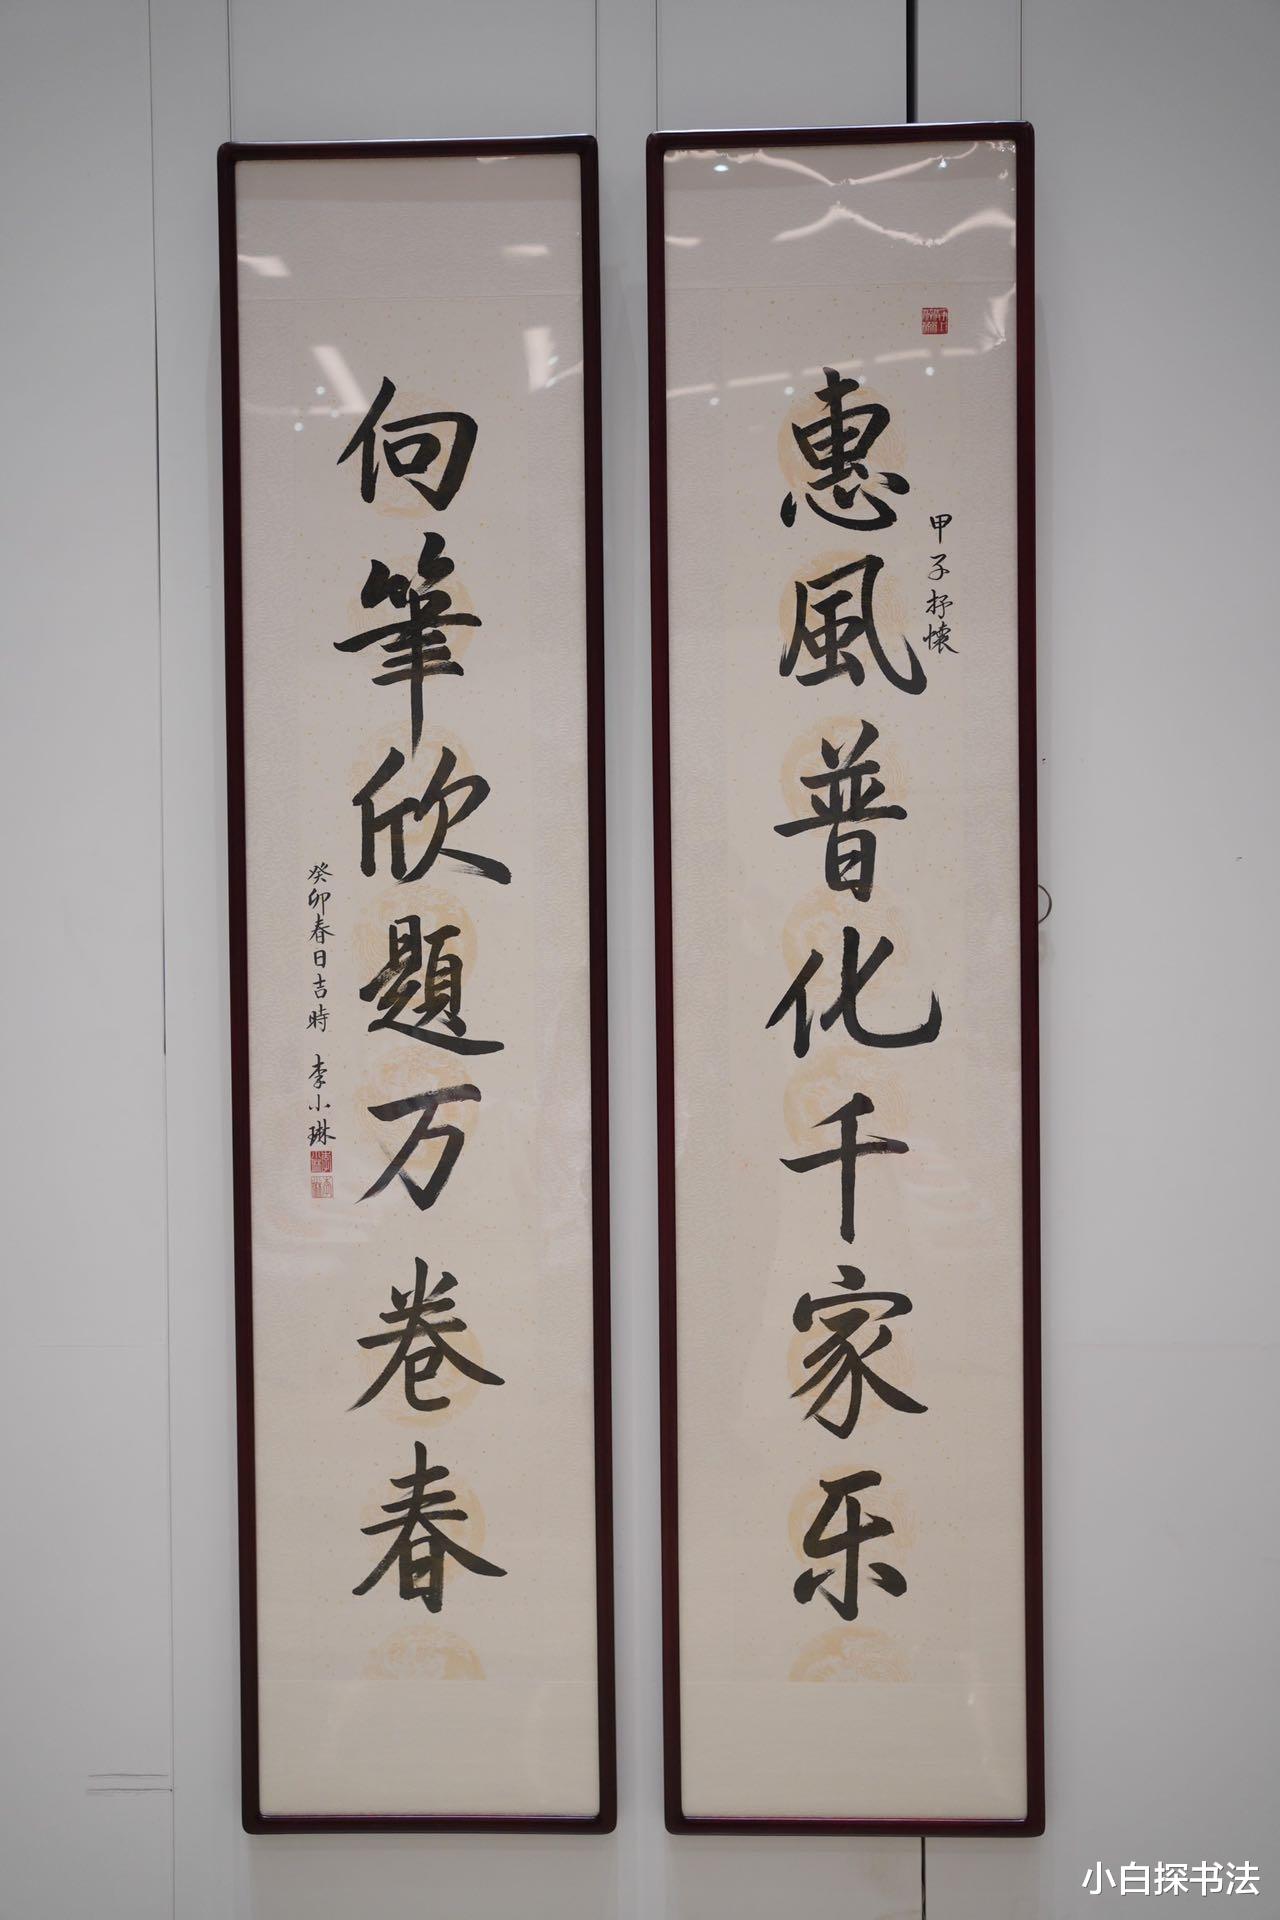 甲子抒懷
惠風普化千家乐
向筆欣題万卷春
癸卯春日吉時 李小琳
小白探书法